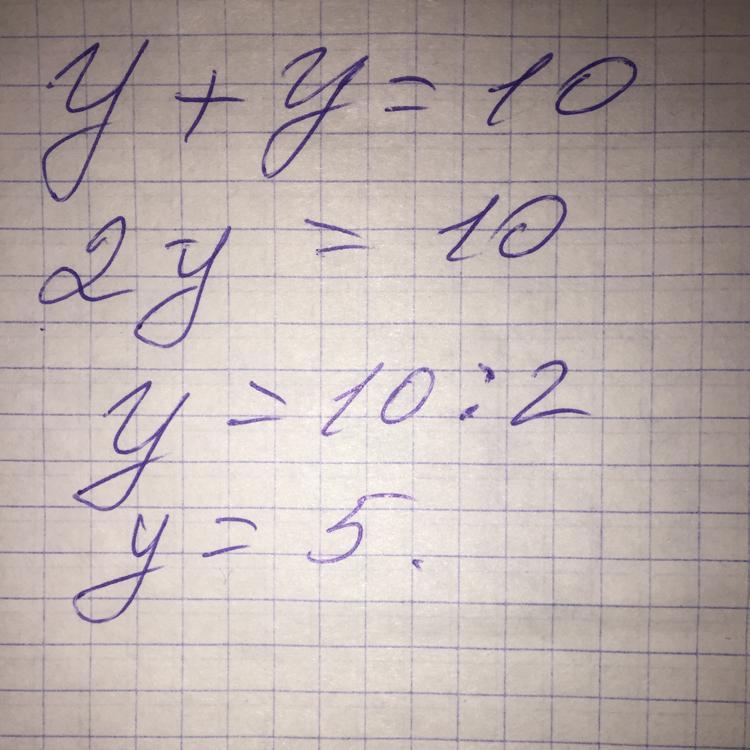 y + y = 10
2y = 10
y = 10 : 2
y = 5.